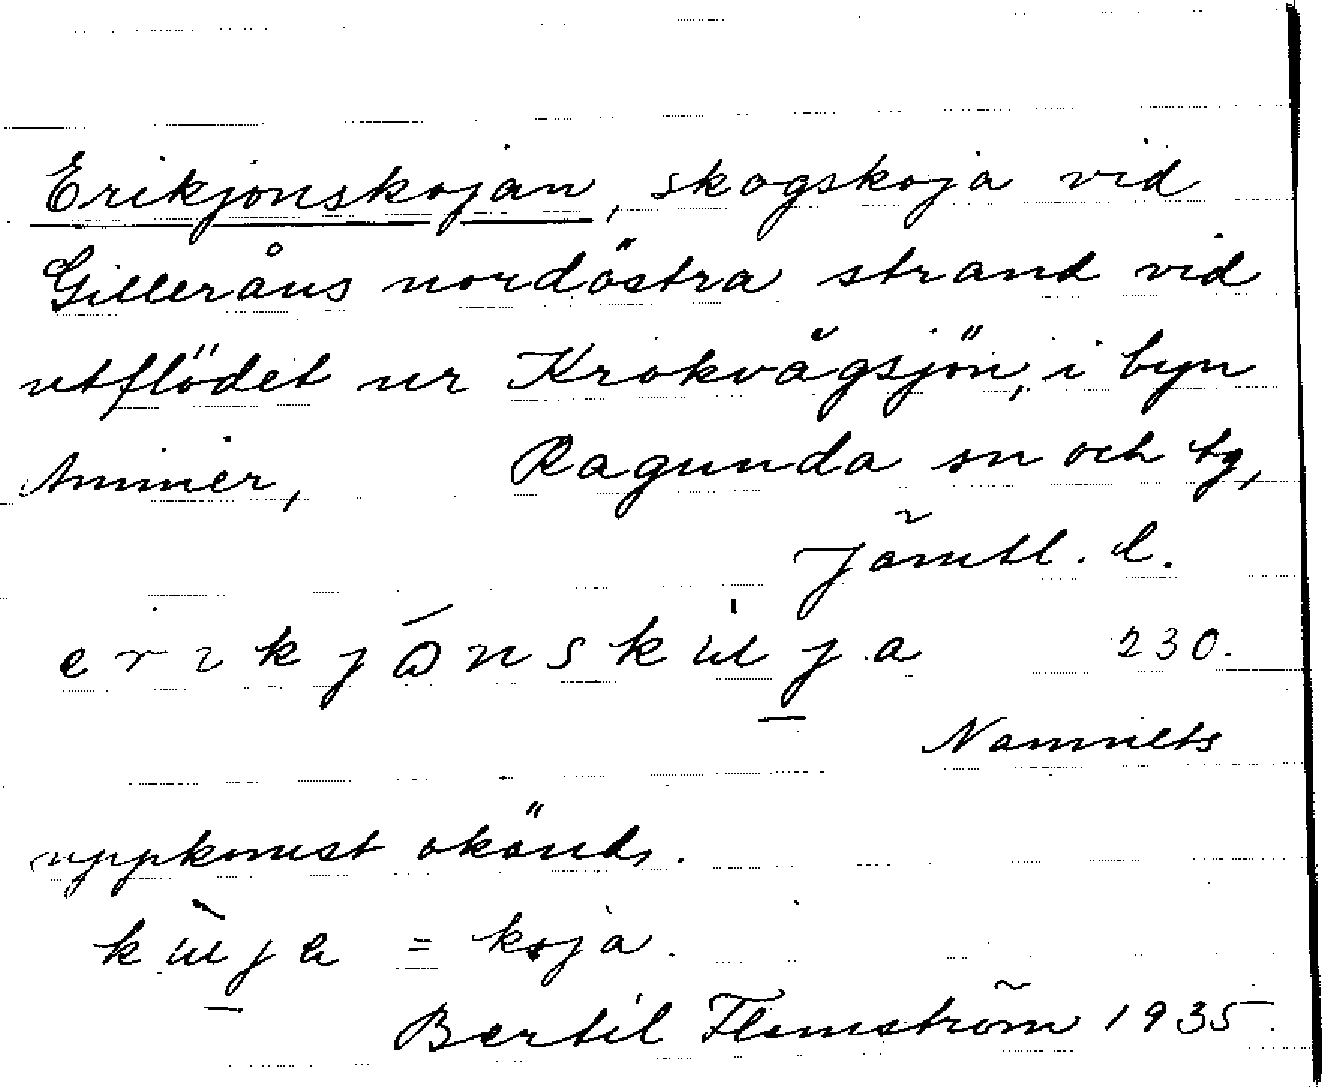 Erikjonskojan, skogskoja vid
Gilleråns nordöstra strand vid
utflödet ur Krokvågsjön, i byn
Ammer, Ragunda sn och tg,
Jämtl. l.
230.
Namnets
uppkomst okänd.
= koja.
Bertil Flemström 1935